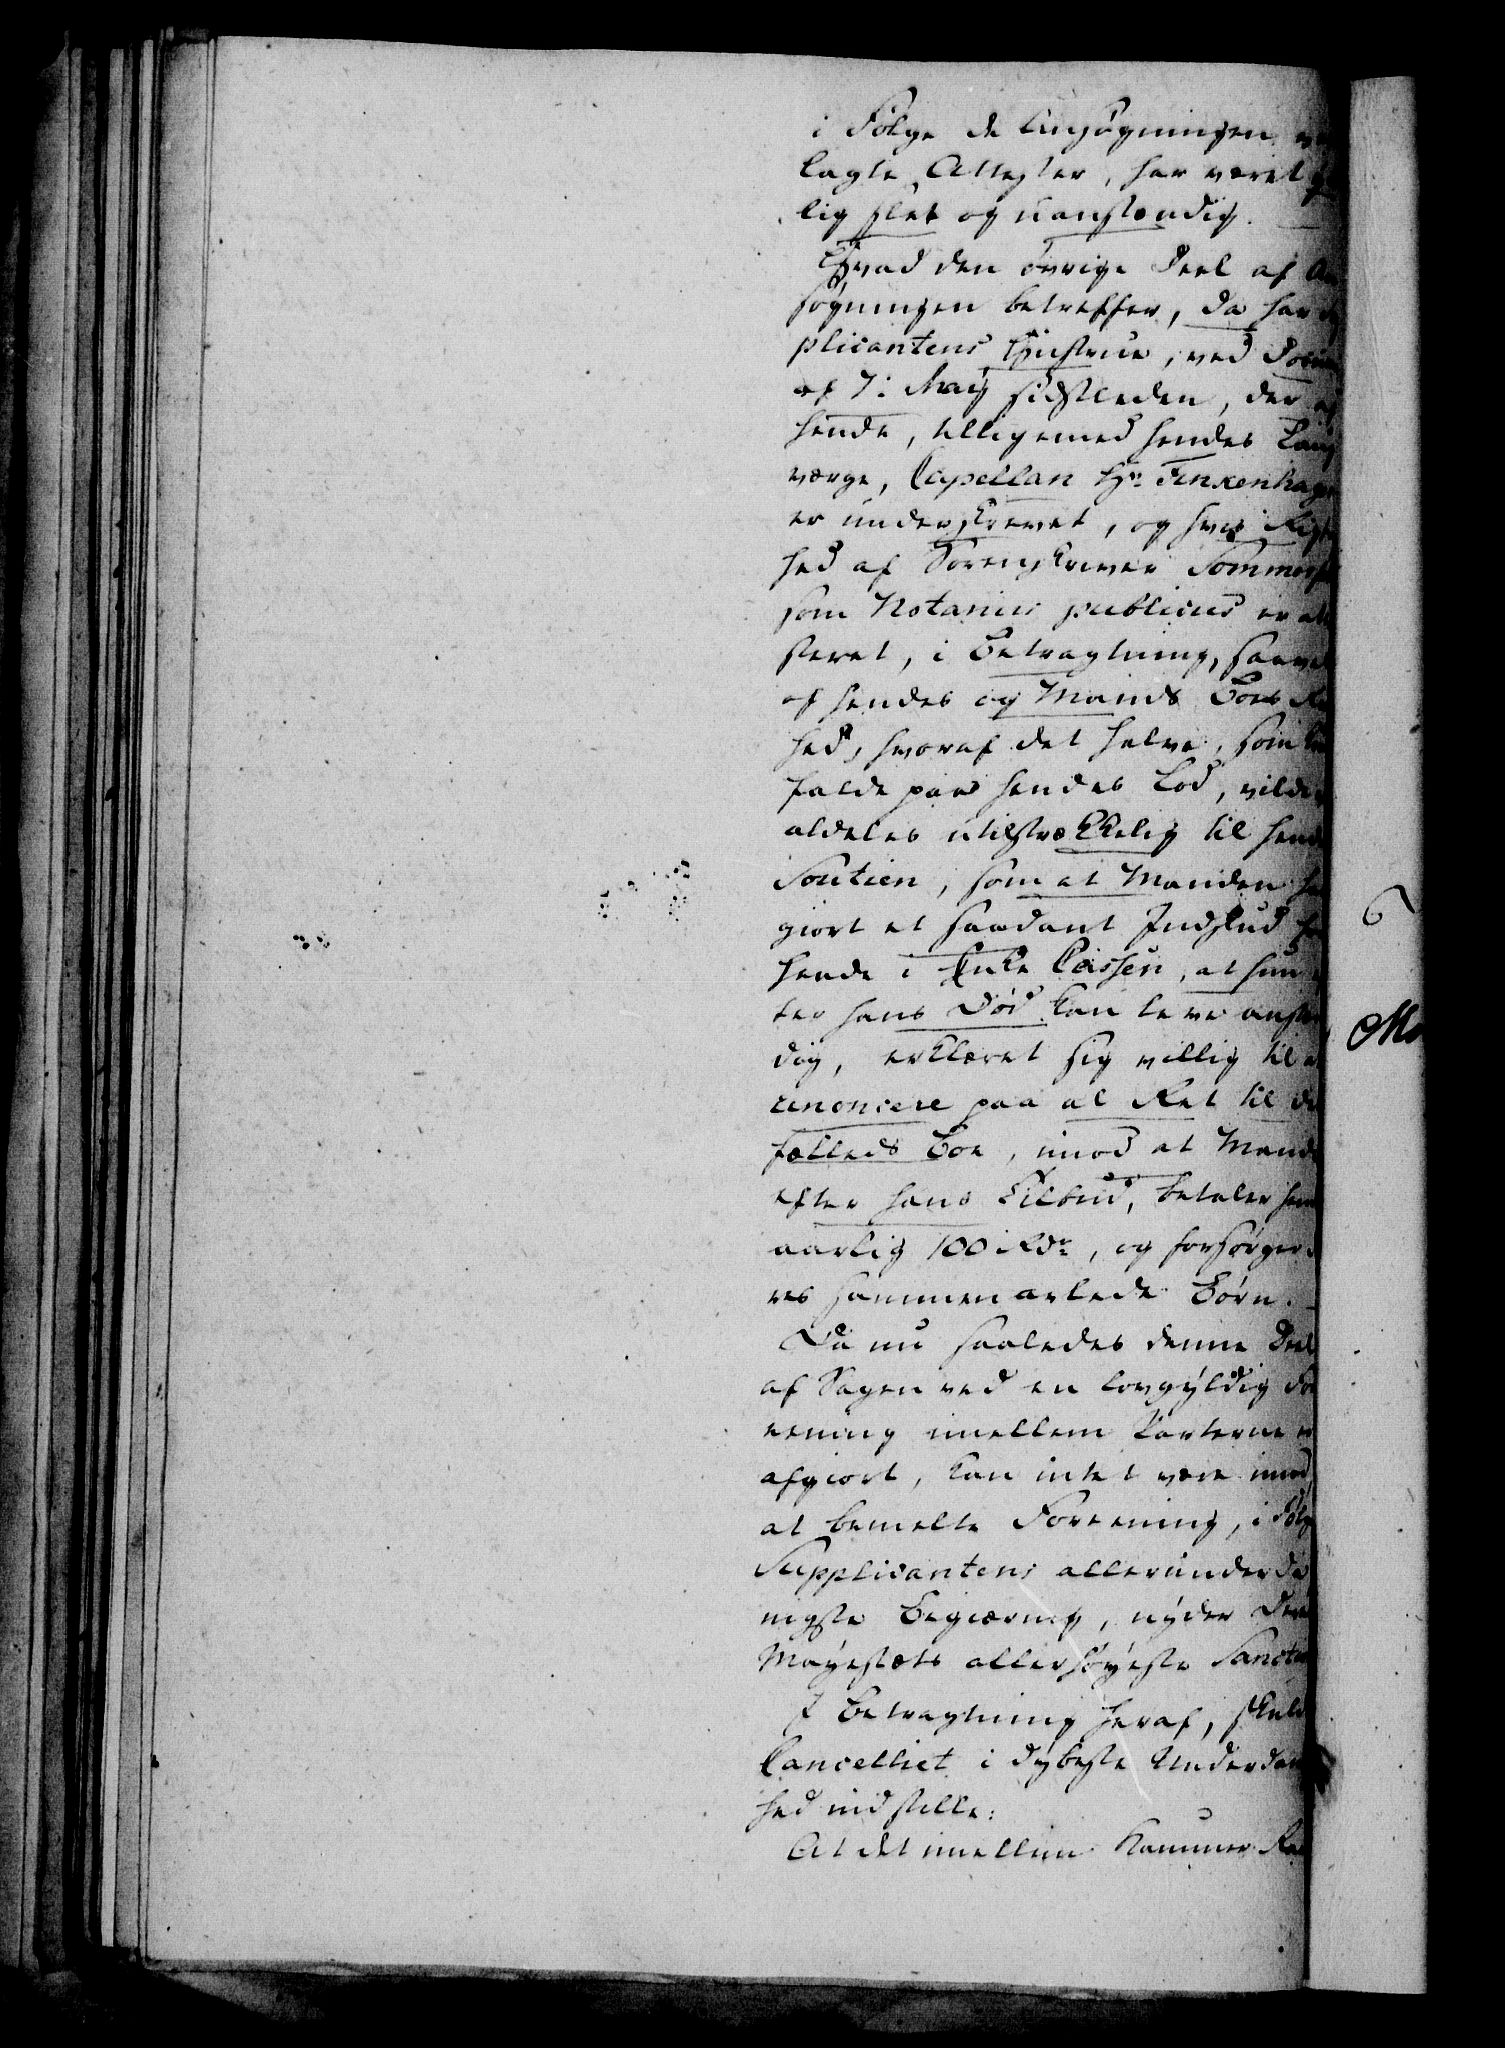 i Følge de Ansøgningen
lagte Attester, har været
lig slet og uanstændig.
Hvad den øvrige Deel af An
søgningen betreffer, da har
plicantens Hustrue, ved
af 7: Maij sidstleden, der af
hende, tilligemed hendes Laug
værge, Capellan Hr: Finkenhage
er underskrevet, og hvis Rigt
hed af Sorenskriver Sommer
som Notarius publicus er att
steret, i Betragtning, saavel
af hendes og Mands Boes
hed, hvoraf det halve, som
falde paa hendes Lod, vilde
aldeles utilstrækkelig til hend
Soutien, som at Manden ha
giort et saadant Indskud for
hende i Enke Cassen, at hun
ter hans Død kan leve anstæn
dig, erklæret sig villig til at
renoncere paa al Ret til de
fælleds Boe, imod at Mand
efter hans Tilbud, betaler hen
aarlig 100 Rdr, og forsørger
res sammen avlede Børn.
Da nu saaledes denne Deel
af Sagen ved en lovgyldig For
eening imellem Parterne er
afgiort, kan intet være imod,
at bemelte Foreening, i Følg
Supplicantens allerunderda
nigste Begiæring, nyder Der
Mayestæts allerhøyeste Sanct
I Betragtning heraf, skuld
Cancelliet i dybeste Underdan
hed indstille:
At det imellem Kammer Ra
6